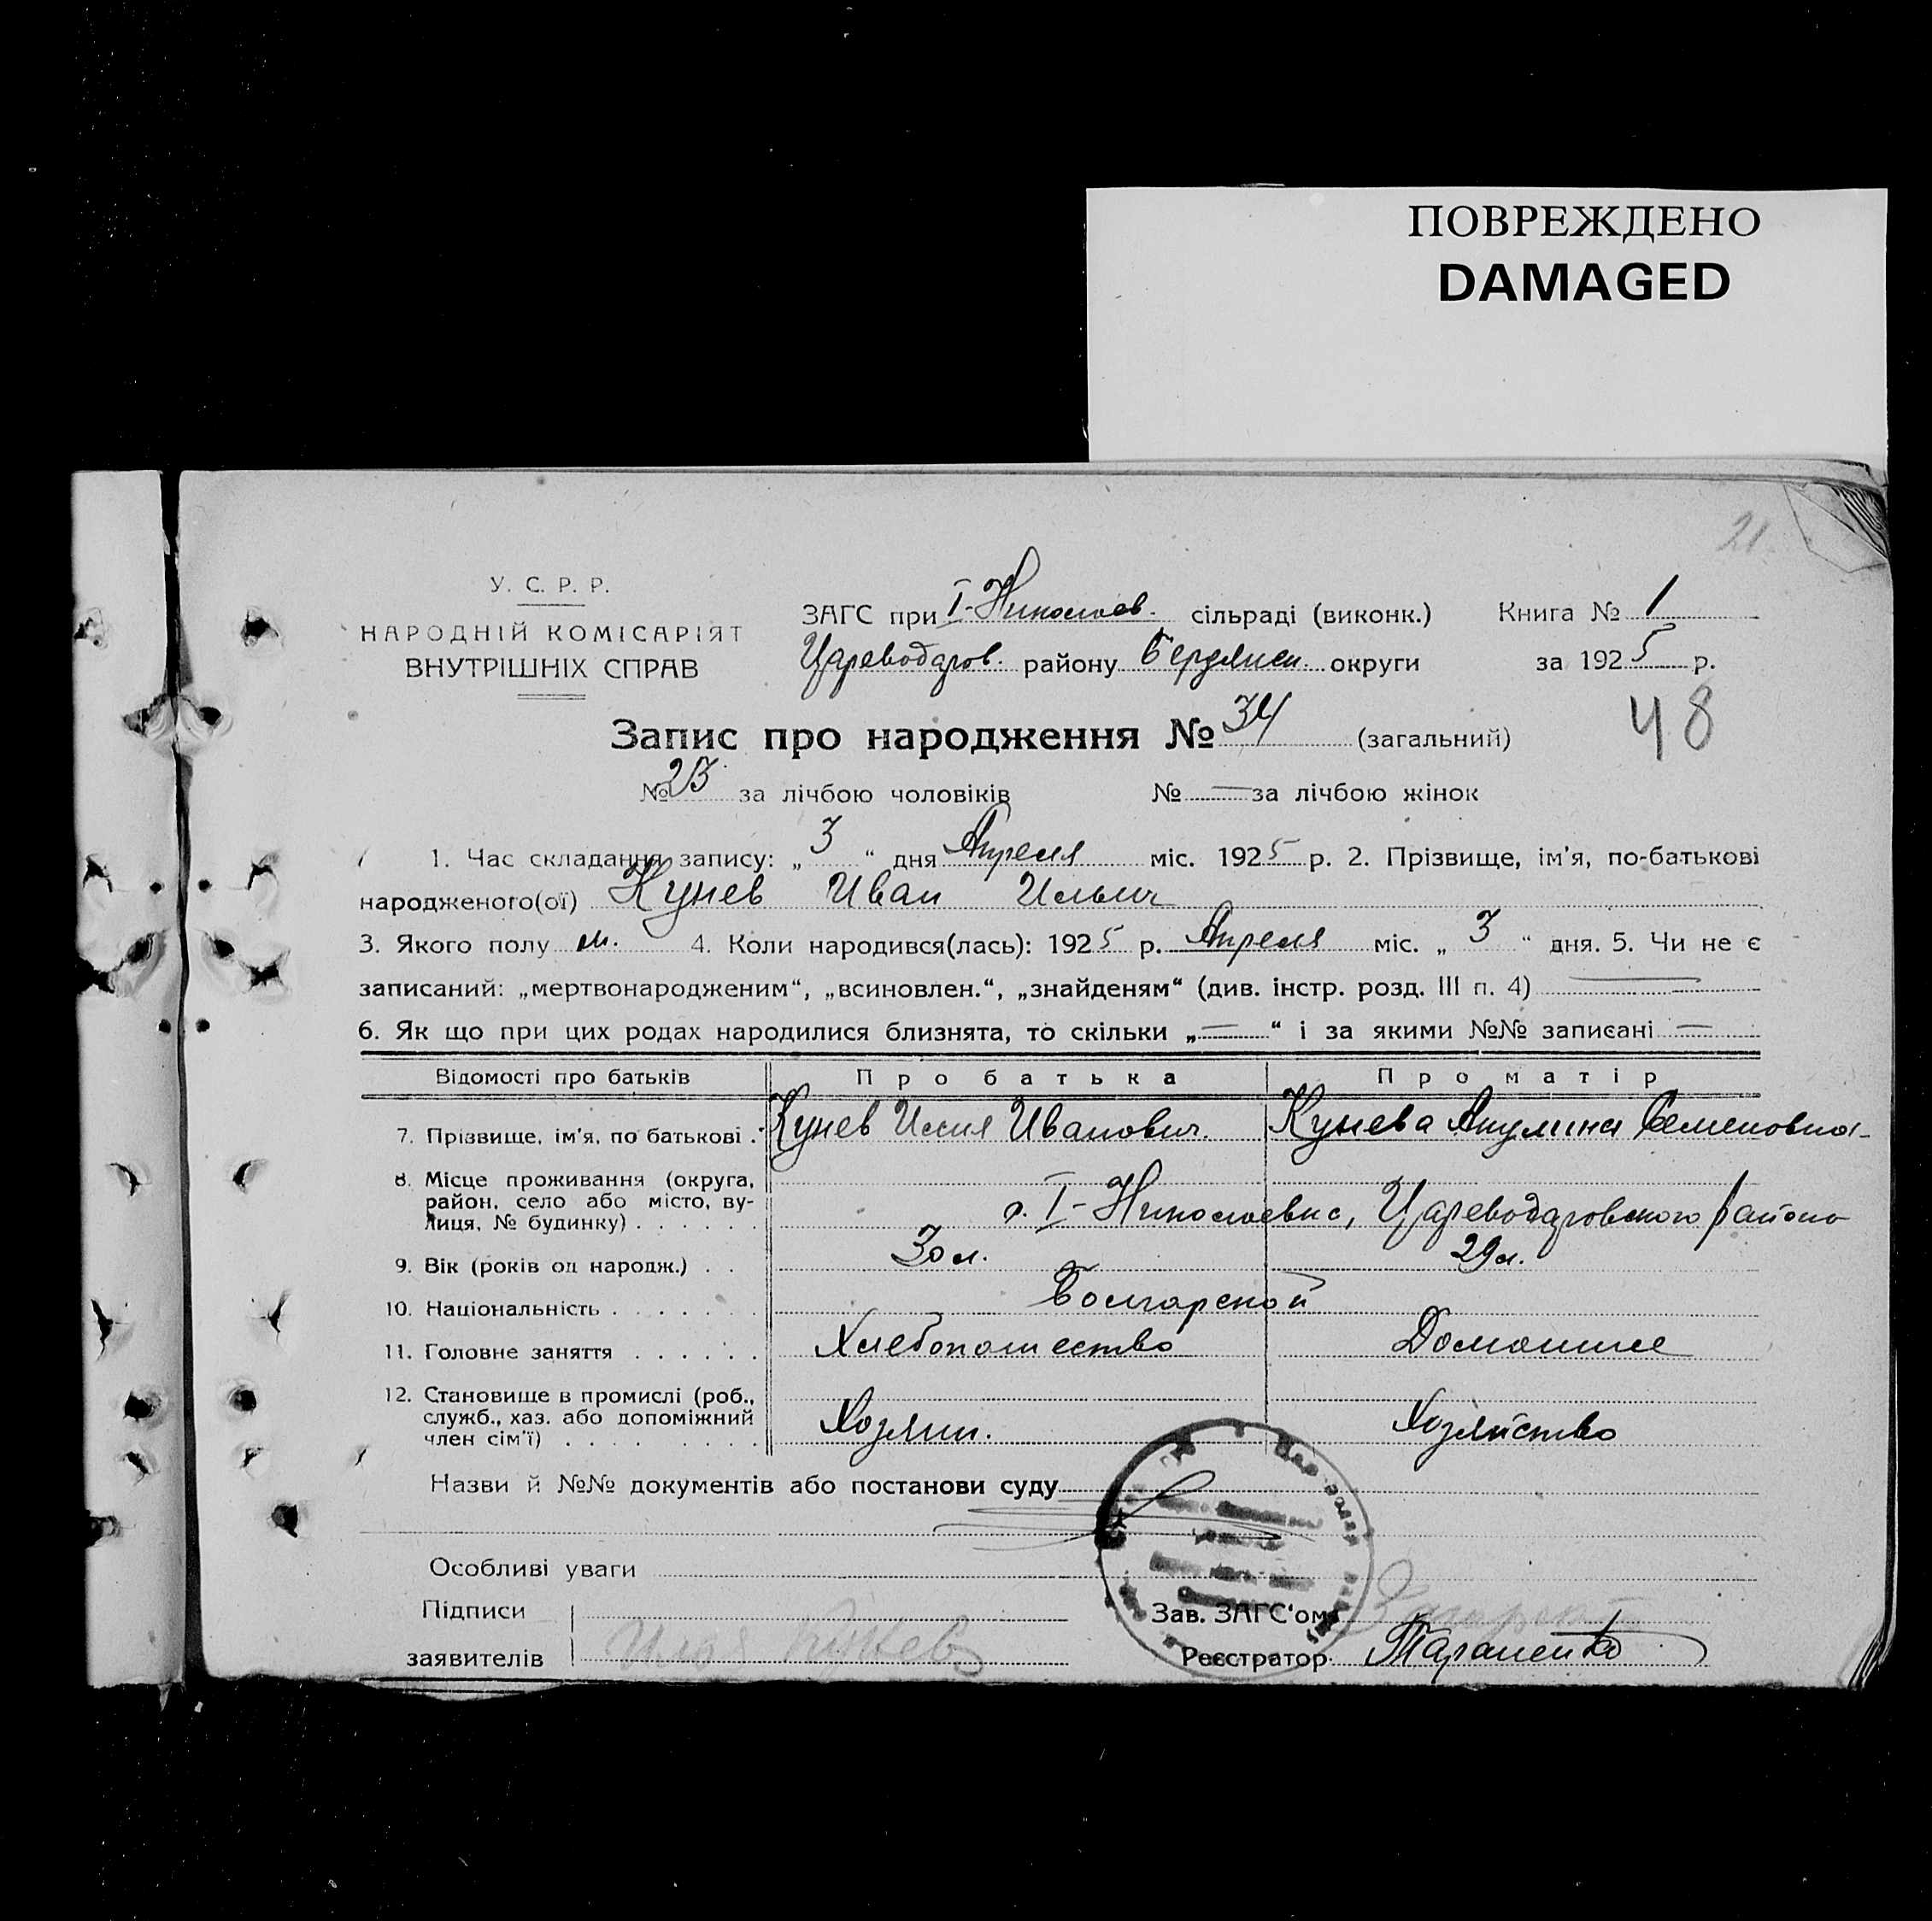 ПОВРЕЖДЕНО
DAMAGED
21
У. С. Р. Р.
НАРОДНІЙ КОМІСАРІЯТ
ВНУТРІШНІХ СПРАВ
ЗАГС при I-Николаев. сільраді (виконк.) Книга № 1
Цареводаров. району Бердянск. округи за 1925 р.
48
Запис про народження № 34 (загальний)
№ 23 за лічбою чоловіків № — за лічбою жінок
1. Час складання запису: „3“ дня Апреля міс. 1925 р. 2. Прізвище, ім'я, по-батькові
народженого(ої) Кунев Иван Ильич
3. Якого полу м. 4. Коли народився(лась): 1925 р. Апреля міс. „3“ дня. 5. Чи не є
записаний: „мертвонародженим“, „всиновлен.“, „знайденям“ (див. інстр. розд. III п. 4) —
6. Як що при цих родах народилися близнята, то скільки „—“ і за якими №№ записані —
Відомості про батьків Про батька Про матір
7. Прізвище, ім'я, по батькові . Кунев Илия Иванович. Кунева Акулина Семеновна
8. Місце проживання (округа,
район, село або місто, ву-
лиця, № будинку) . . . . . . с. I-Николаевка, Цареводаровского района
9. Вік (років од народж.) . . 30 л. 29 л.
10. Національність . . . . . . . Болгарской
11. Головне заняття . . . . . . Хлебопашество Домашнее
12. Становище в промислі (роб.,
служб., хаз. або допоміжний
член сім'ї) . . . . . . . . Хозяин. Хозяйство
Назви й №№ документів або постанови суду
Особливі уваги
Підписи
заявителів Илья Кунев
Зав. ЗАГС'ом
Реєстратор Тараненко